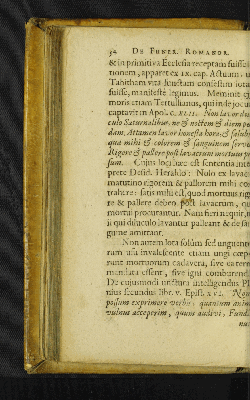 52 DE FUNER. ROMANOR.
& in primitiva Ecclesia receptam fuisse
tionem, apparet ex IX. cap. Actuum, u
Tabitham vita functam
fuisse, manifestè legimus. Meminit ej
moris etiam Tertullianus, qui inde jocu
captavit in Apol. c. XLII. Non lavo di
culo Saturnalibus, ne & noctem & diem per
dam, Attamen lavo honesta hora & salubri
qua mihi & colorem & sanguinem serve
Rigere & pallere post lavacrum mortuus pos
sum. Cujus loci hæc est sententia inter
prete Desid. Heraldo: Nolo ex lavac
matutino rigorem & pallorem mihi con
trahere: satis mihi est, quod mortuus rige
re & pallere debeo post lavacrum, qu
mortui procurantur. Nam fieri nequit, n
ii qui diluculo lavantur palleant & de san
guine amittant.
Non autem lota solùm sed unguento
rum usu invalescente etiam ungi cœpe
runt mortuorum cadavera, sive
mandata essent, sive igni comburenda
De ejusmodi unctura intelligendus Pl
nius secundus lib. V. Epist. XVI. Non
possum exprimere verbis quantum anim
vulnus acceperim, quum audivi, Fund